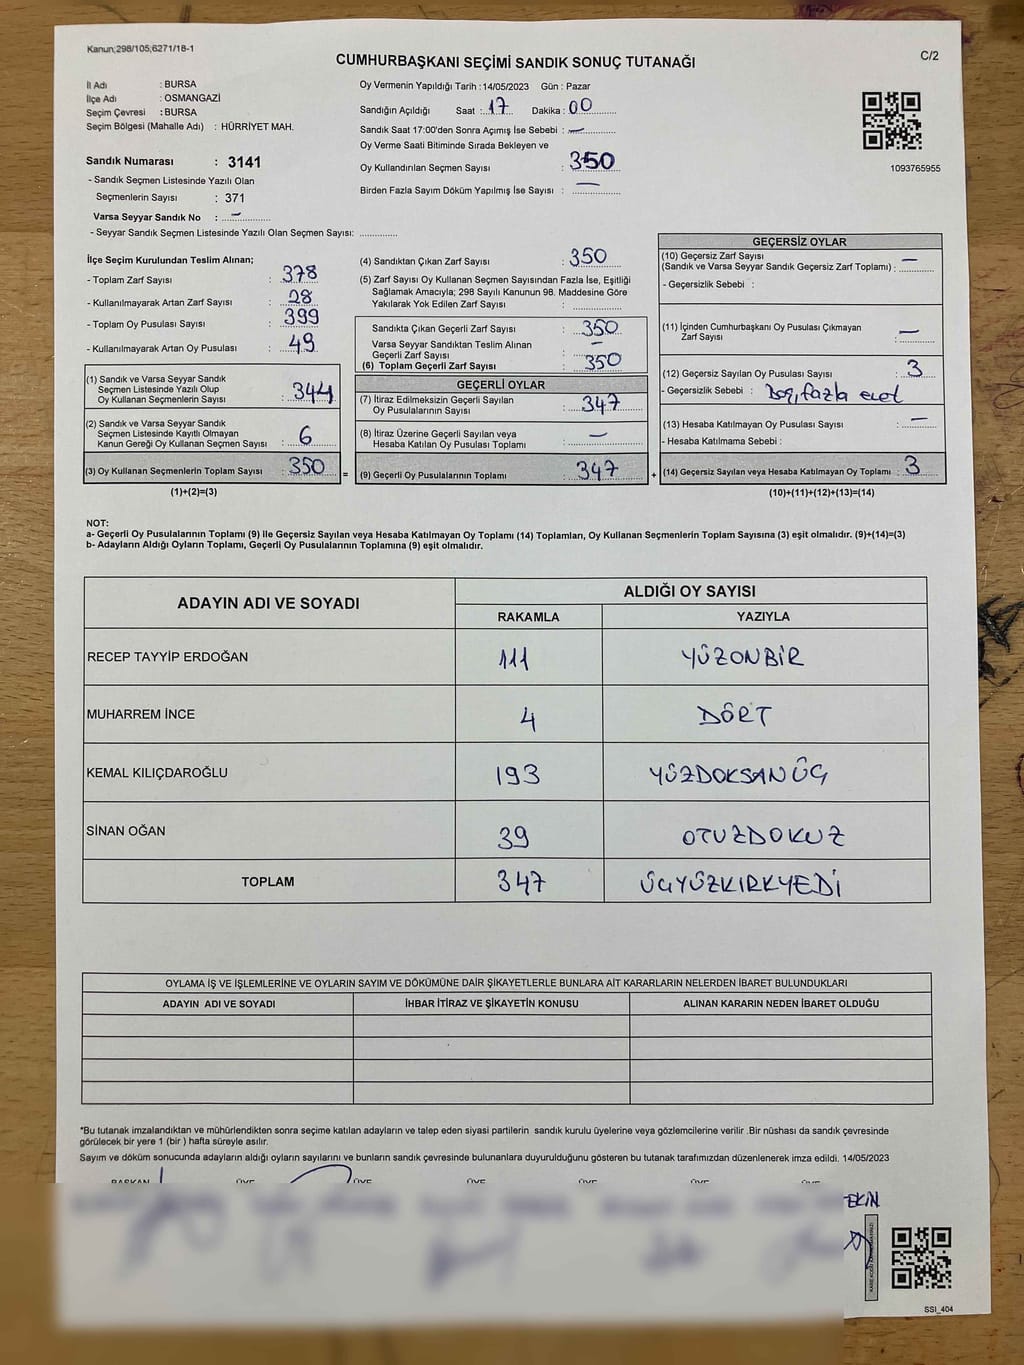 Kanun;298/105;6271/18-1
CUMHURBAŞKANI SEÇİMİ SANDIK SONUÇ TUTANAĞI
C/2
İl Adı : BURSA
İlçe Adı : OSMANGAZİ
Seçim Çevresi : BURSA
Seçim Bölgesi (Mahalle Adı) : HÜRRİYET MAH.
Sandık Numarası : 3141
- Sandık Seçmen Listesinde Yazılı Olan
Seçmenlerin Sayısı : 371
Varsa Seyyar Sandık No : —
- Seyyar Sandık Seçmen Listesinde Yazılı Olan Seçmen Sayısı: ..............
Oy Vermenin Yapıldığı Tarih :14/05/2023 Gün : Pazar
Sandığın Açıldığı Saat : 17 Dakika : 00
Sandık Saat 17:00'den Sonra Açımış İse Sebebi : —
Oy Verme Saati Bitiminde Sırada Bekleyen ve
Oy Kullandırılan Seçmen Sayısı : 350
Birden Fazla Sayım Döküm Yapılmış İse Sayısı : —
1093765955
İlçe Seçim Kurulundan Teslim Alınan;
- Toplam Zarf Sayısı : 378
- Kullanılmayarak Artan Zarf Sayısı : 28
- Toplam Oy Pusulası Sayısı : 399
- Kullanılmayarak Artan Oy Pusulası : 49
(1) Sandık ve Varsa Seyyar Sandık
Seçmen Listesinde Yazılı Olup
Oy Kullanan Seçmenlerin Sayısı : 344
(2) Sandık ve Varsa Seyyar Sandık
Seçmen Listesinde Kayıtlı Olmayan
Kanun Gereği Oy Kullanan Seçmen Sayısı : 6
(3) Oy Kullanan Seçmenlerin Toplam Sayısı : 350 =
(1)+(2)=(3)
(4) Sandıktan Çıkan Zarf Sayısı : 350
(5) Zarf Sayısı Oy Kullanan Seçmen Sayısından Fazla İse, Eşitliği
Sağlamak Amacıyla; 298 Sayılı Kanunun 98. Maddesine Göre
Yakılarak Yok Edilen Zarf Sayısı :
Sandıkta Çıkan Geçerli Zarf Sayısı : 350
Varsa Seyyar Sandıktan Teslim Alınan
Geçerli Zarf Sayısı : —
(6) Toplam Geçerli Zarf Sayısı : 350
GEÇERLİ OYLAR
(7) İtiraz Edilmeksizin Geçerli Sayılan
Oy Pusulalarının Sayısı : 347
(8) İtiraz Üzerine Geçerli Sayılan veya
Hesaba Katılan Oy Pusulaları Toplamı : —
(9) Geçerli Oy Pusulalarının Toplamı : 347 +
GEÇERSİZ OYLAR
(10) Geçersiz Zarf Sayısı
(Sandık ve Varsa Seyyar Sandık Geçersiz Zarf Toplamı) : —
- Geçersizlik Sebebi :
(11) İçinden Cumhurbaşkanı Oy Pusulası Çıkmayan
Zarf Sayısı : —
(12) Geçersiz Sayılan Oy Pusulası Sayısı : 3
- Geçersizlik Sebebi : Boş, fazla evet
(13) Hesaba Katılmayan Oy Pusulası Sayısı : —
- Hesaba Katılmama Sebebi :
(14) Geçersiz Sayılan veya Hesaba Katılmayan Oy Toplamı : 3
(10)+(11)+(12)+(13)=(14)
NOT:
a- Geçerli Oy Pusulalarının Toplamı (9) ile Geçersiz Sayılan veya Hesaba Katılmayan Oy Toplamı (14) Toplamları, Oy Kullanan Seçmenlerin Toplam Sayısına (3) eşit olmalıdır. (9)+(14)=(3)
b- Adayların Aldığı Oyların Toplamı, Geçerli Oy Pusulalarının Toplamına (9) eşit olmalıdır.
ADAYIN ADI VE SOYADI ALDIĞI OY SAYISI
RAKAMLA YAZIYLA
RECEP TAYYİP ERDOĞAN 111 YÜZONBİR
MUHARREM İNCE 4 DÖRT
KEMAL KILIÇDAROĞLU 193 YÜZDOKSANÜÇ
SİNAN OĞAN 39 OTUZDOKUZ
TOPLAM 347 ÜÇYÜZKIRKYEDİ
OYLAMA İŞ VE İŞLEMLERİNE VE OYLARIN SAYIM VE DÖKÜMÜNE DAİR ŞİKAYETLERLE BUNLARA AİT KARARLARIN NELERDEN İBARET BULUNDUKLARI
ADAYIN ADI VE SOYADI İHBAR İTİRAZ VE ŞİKAYETİN KONUSU ALINAN KARARIN NEDEN İBARET OLDUĞU
*Bu tutanak imzalandıktan ve mühürlendikten sonra seçime katılan adayların ve talep eden siyasi partilerin sandık kurulu üyelerine veya gözlemcilerine verilir .Bir nüshası da sandık çevresinde
görülecek bir yere 1 (bir ) hafta süreyle asılır.
Sayım ve döküm sonucunda adayların aldığı oyların sayılarını ve bunların sandık çevresinde bulunanlara duyurulduğunu gösteren bu tutanak tarafımızdan düzenlenerek imza edildi. 14/05/2023
BAŞKAN ÜYE ÜYE ÜYE ÜYE ÜYE ÜYE
TEKİN
SSI_404